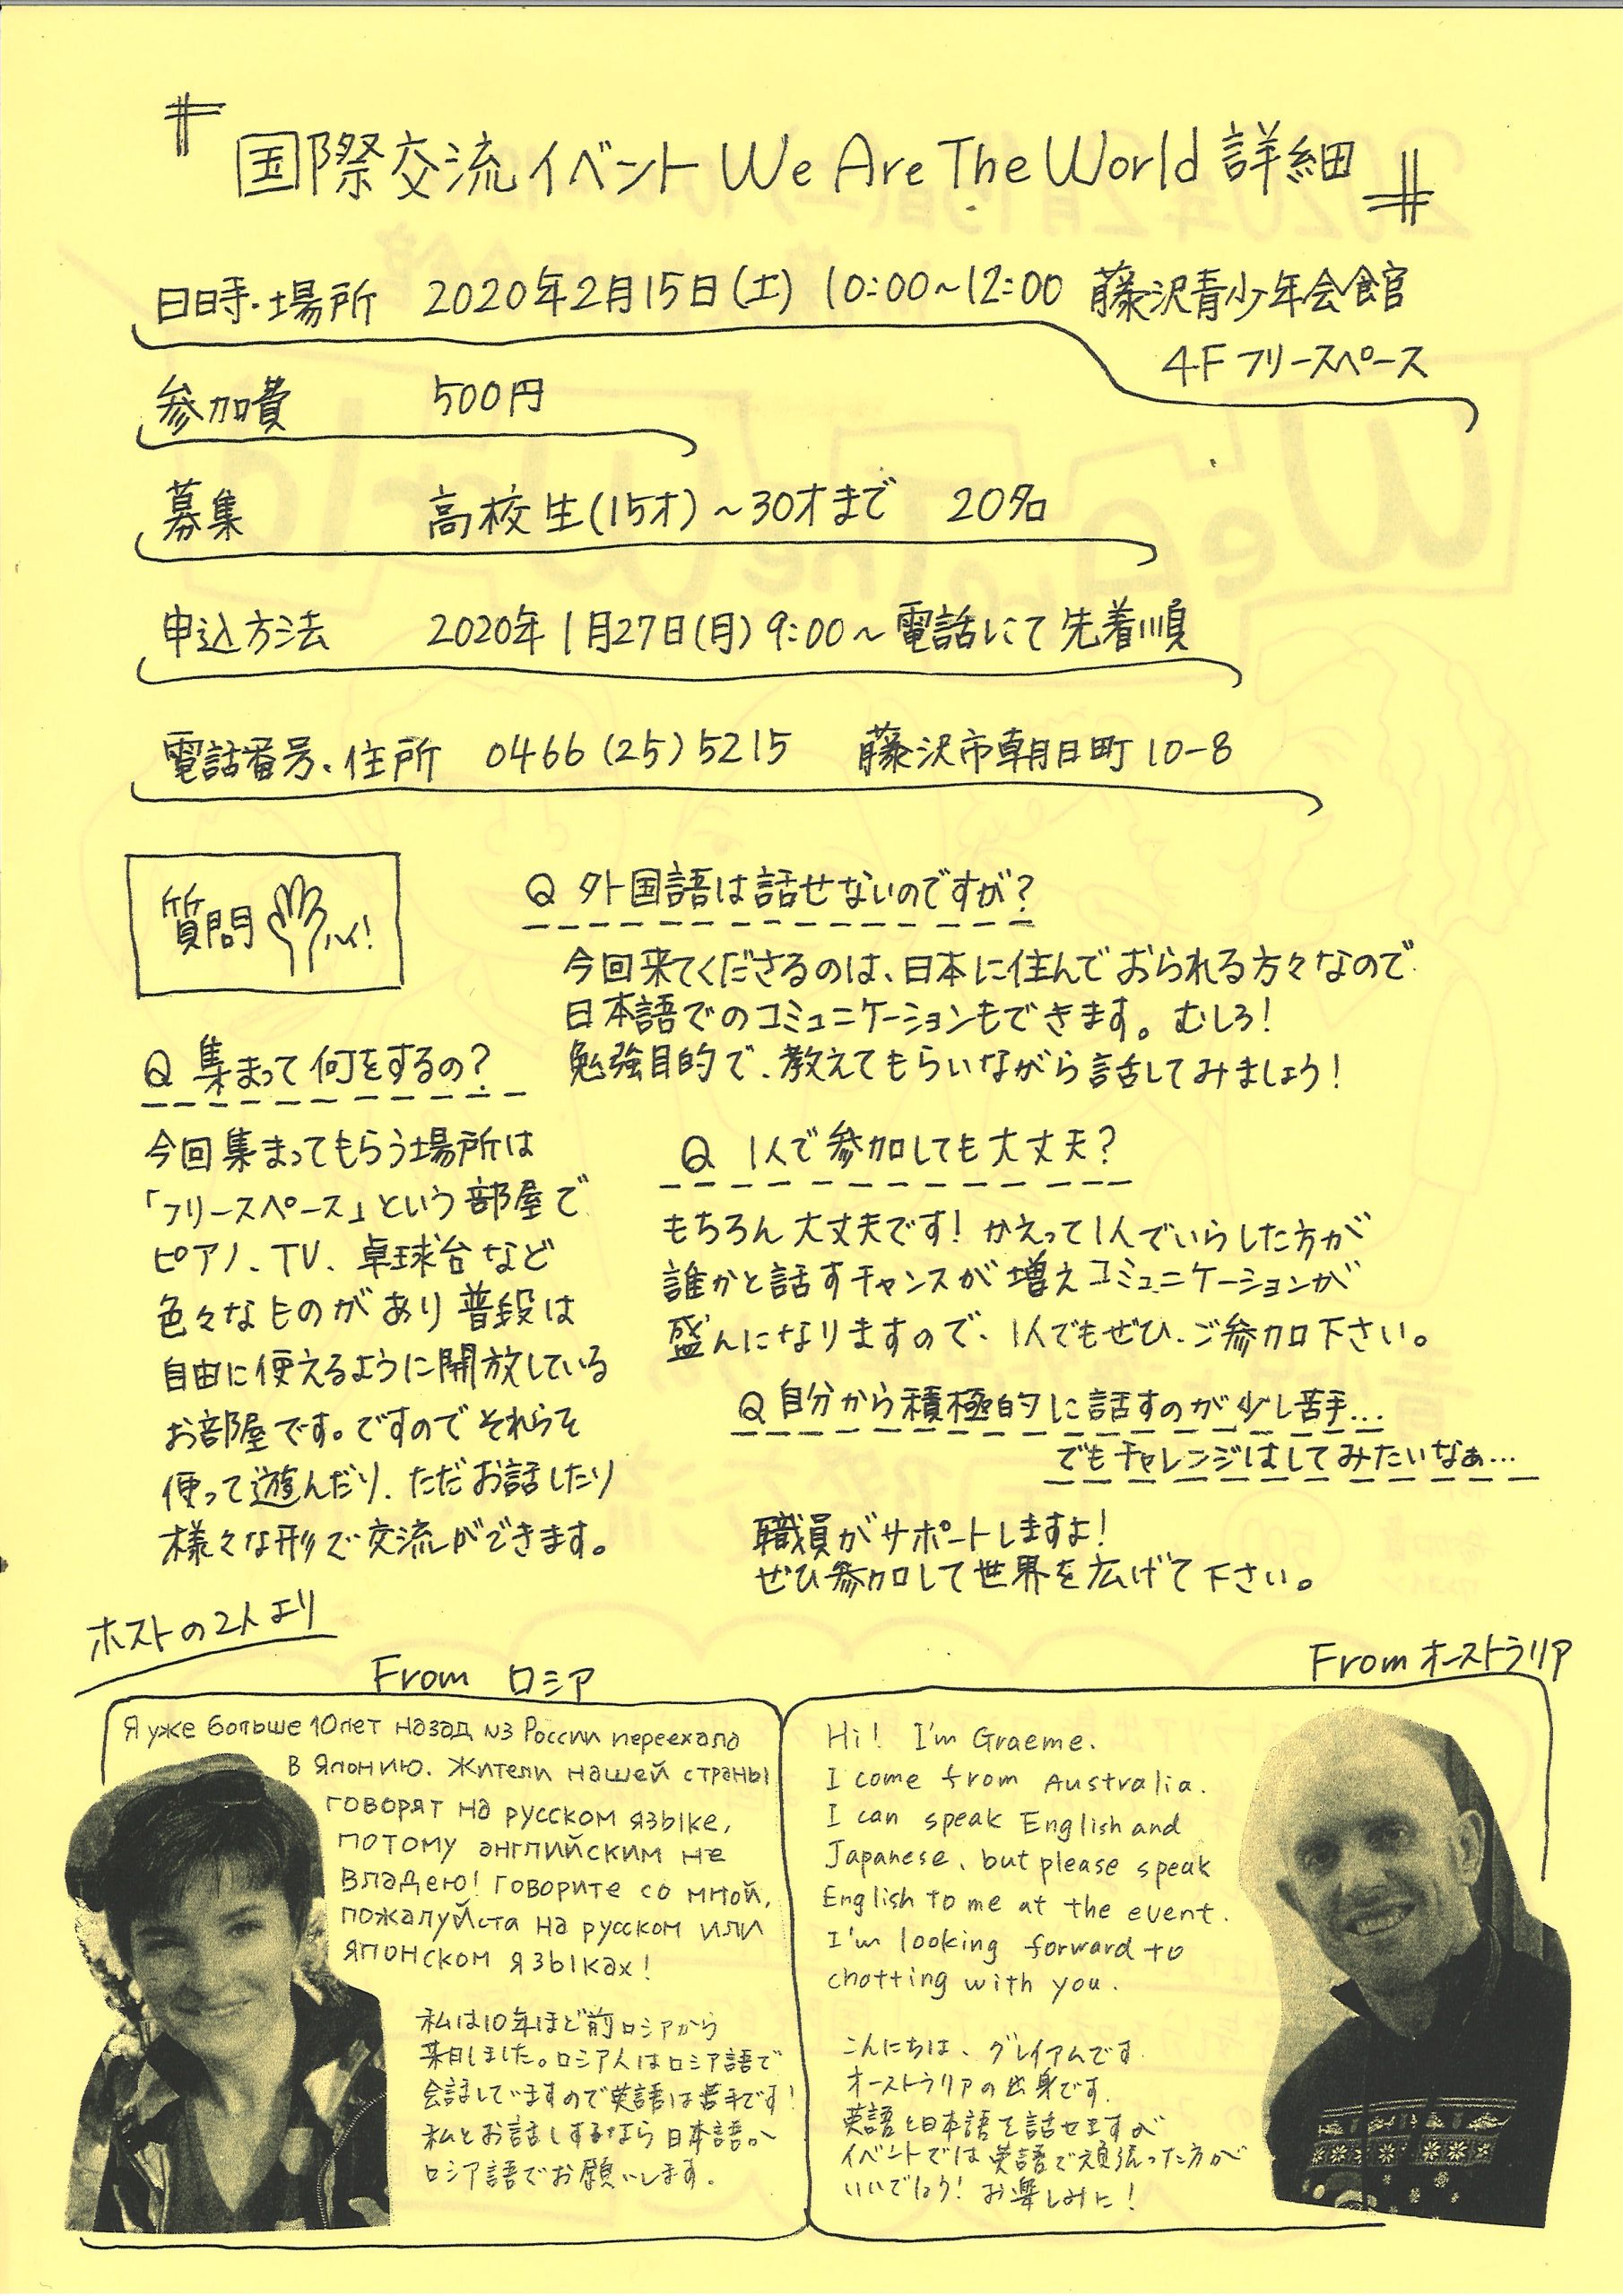 国際交流イベント We Are The World 詳細
日時・場所 2020年2月15日(土) 10:00~12:00 藤沢青少年会館
4F フリースペース
参加費 500円
募集 高校生(15才)~30才まで 20名
申込方法 2020年1月27日(月) 9:00~電話にて先着順
電話番号、住所 0466(25)5215 藤沢市朝日町10-8
質問 ハイ!
Q 外国語は話せないのですが?
今回来てくださるのは、日本に住んでおられる方々なので
日本語でのコミュニケーションもできます。むしろ!
勉強目的で、教えてもらいながら話してみましょう!
Q 集まって何をするの?
今回集まってもらう場所は
「フリースペース」という部屋で
ピアノ、TV、卓球台など
色々なものがあり普段は
自由に使えるように開放している
お部屋です。ですのでそれらを
使って遊んだり、ただお話したり
様々な形で交流ができます。
Q 1人で参加しても大丈夫?
もちろん大丈夫です! かえって1人でいらした方が
誰かと話すチャンスが増えコミュニケーションが
盛んになりますので、1人でもぜひ、ご参加下さい。
Q 自分から積極的に話すのが少し苦手...
でもチャレンジはしてみたいなぁ...
職員がサポートしますよ!
ぜひ参加して世界を広げて下さい。
ホストの2人より
From ロシア
Я уже больше 10 лет назад из России переехала
в Японию. Жители нашей страны
говорят на русском языке,
потому английским не
владею! Говорите со мной,
пожалуйста на русском или
японском языках!
私は10年ほど前ロシアから
来日しました。ロシア人はロシア語で
会話していますので英語は苦手です!
私とお話しするなら日本語か
ロシア語でお願いします。
From オーストラリア
Hi! I'm Graeme.
I come from Australia.
I can speak English and
Japanese, but please speak
English to me at the event.
I'm looking forward to
chatting with you.
こんにちは、グレイアムです
オーストラリアの出身です。
英語と日本語を話せますが
イベントでは英語で頑張った方が
いいでしょう! お楽しみに!